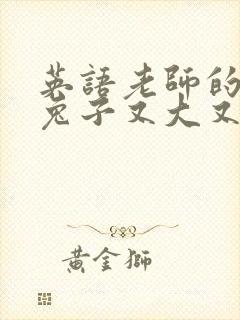 英語老師的
兔子又大又
黃金獅